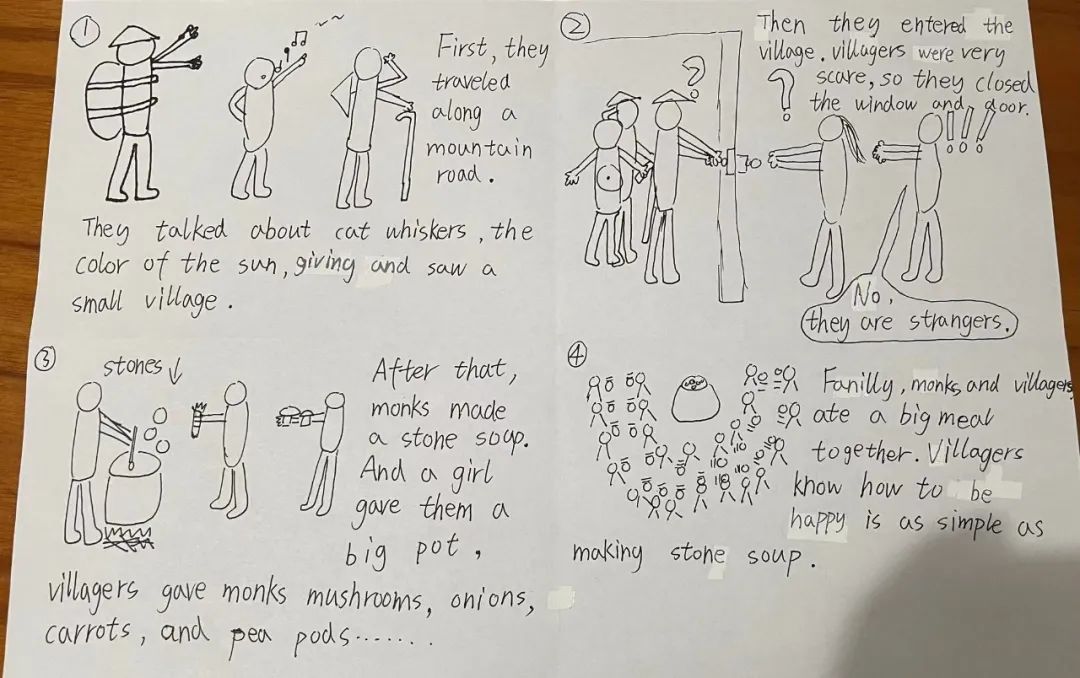 ①
First, they
traveled
along a
mountain
road.
They talked about cat whiskers, the
color of the sun, giving and saw a
small village.
②
Then they entered the
village. villagers were very
scare, so they closed
the window and door.
?
?
!!!
No,
they are strangers.
③
stones↓
After that,
monks made
a stone soup.
And a girl
gave them a
big pot,
villagers gave monks mushrooms, onions,
carrots, and pea pods.......
④
Fanilly, monks, and villagers
ate a big meal
together. Villagers
know how to be
happy is as simple as
making stone soup.